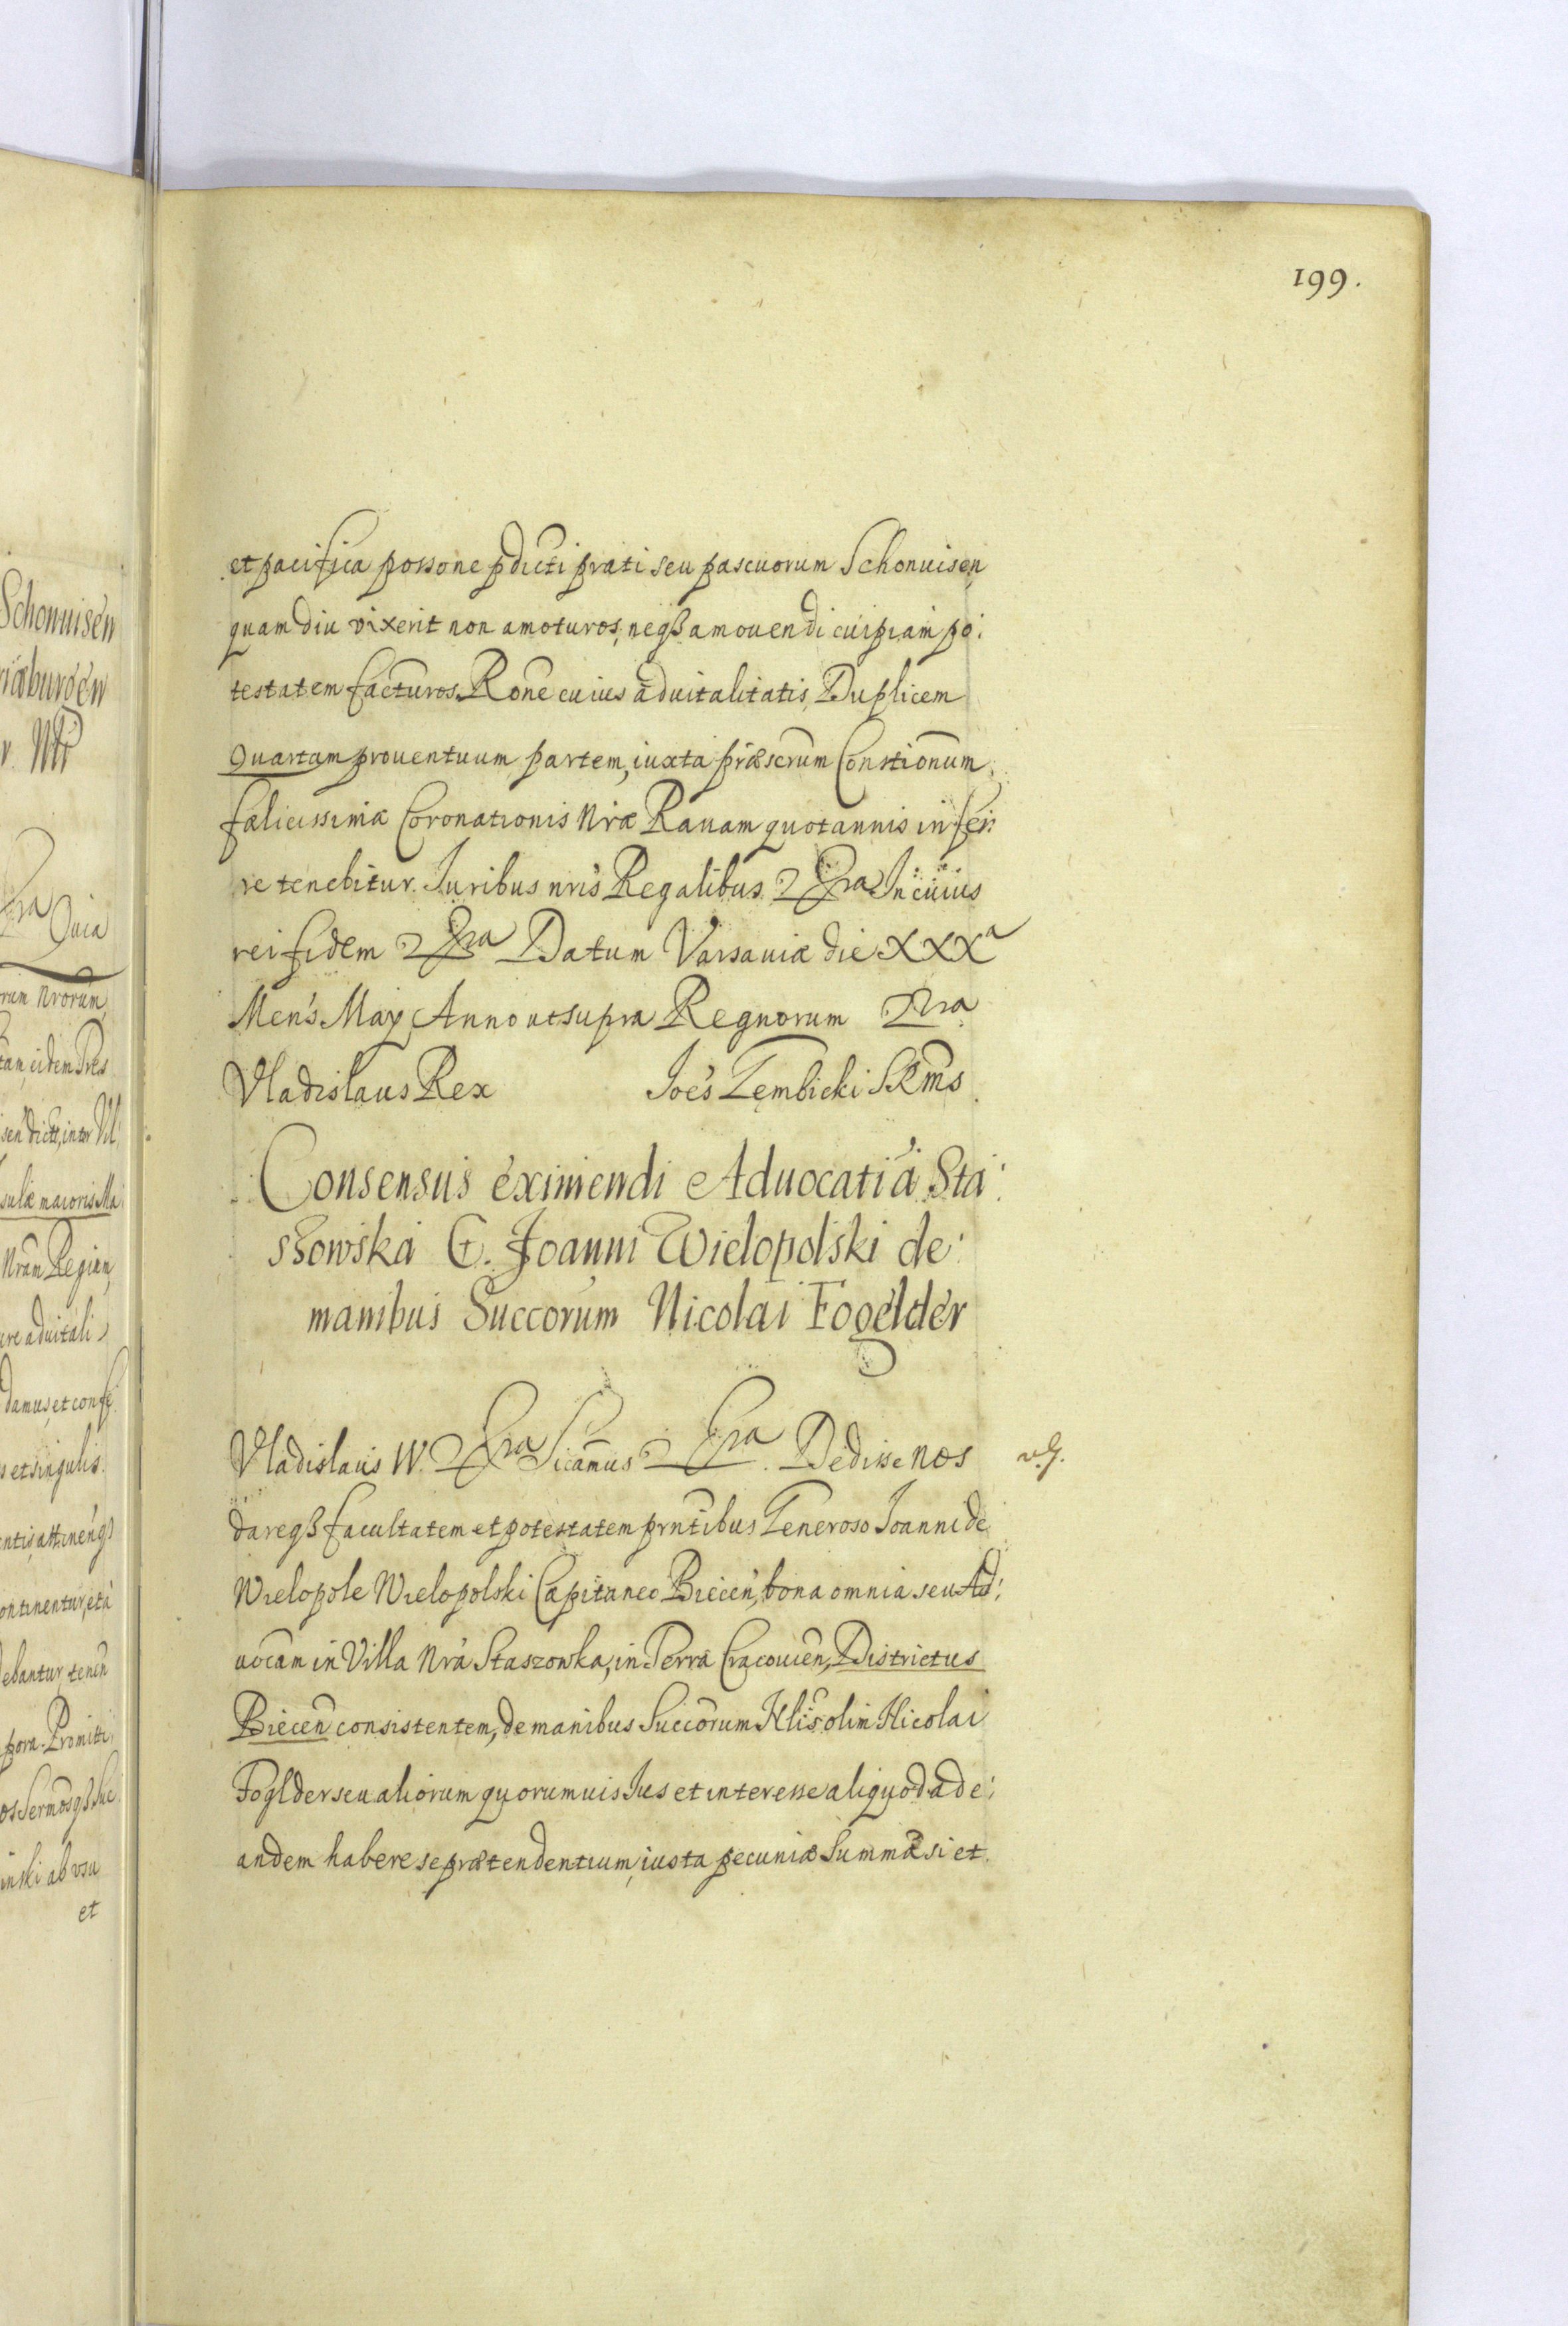 199.
et pacifica possone pdicti prati seu pascuorum Schonuisen
quam diu vixerit non amoturos, negß amouendi cuipiam po:
testatem facturos. Rone cuius aduitalitatis, Duplicem
Quartam prouentuum partem, iuxta præscrum Constionum
fælicissimæ Coronationis Nræ Rauam quotannis infer:
re tenebitur. Iuribus nris Regalibus &ra In cuius
rei fidem &ra Datum Varsauiæ die XXXa
Mens May Anno ut supra Regnorum Nra
Vladislaus Rex Joes Gembicki SRms
Consensus eximendi Aduocatia Sta:
szowska G. Joanni Wielopolski de:
manibus Succorum Nicolai Fogelder
Vladislaus IV. &ra Sicamus &ra. Dedisse nos
daregß facultatem et potestatem prntibus Generoso Ioanni de
Wielopole Wielopolski Capitaneo Biecen, bona omnia seu Ad:
uocam in Villa Nra Staszowka, in Terra Cracouien, Districtus
Biecen consistentem, de manibus Succorum Nlis olim Nicolai
Foglder seu aliorum quorumuis Ius et interesse aliquod ad e:
andem habere se prætendentium, iusta pecuniæ Summa si et
Schonuisen
Quia
rum Nrorum
sulæ maioris Ma
Nram Regiam
ure aduitali
damus, et confe
s et singulis
ontinentur, et a
debantur, tenen
pora. Promitti
inski ab vsu
et